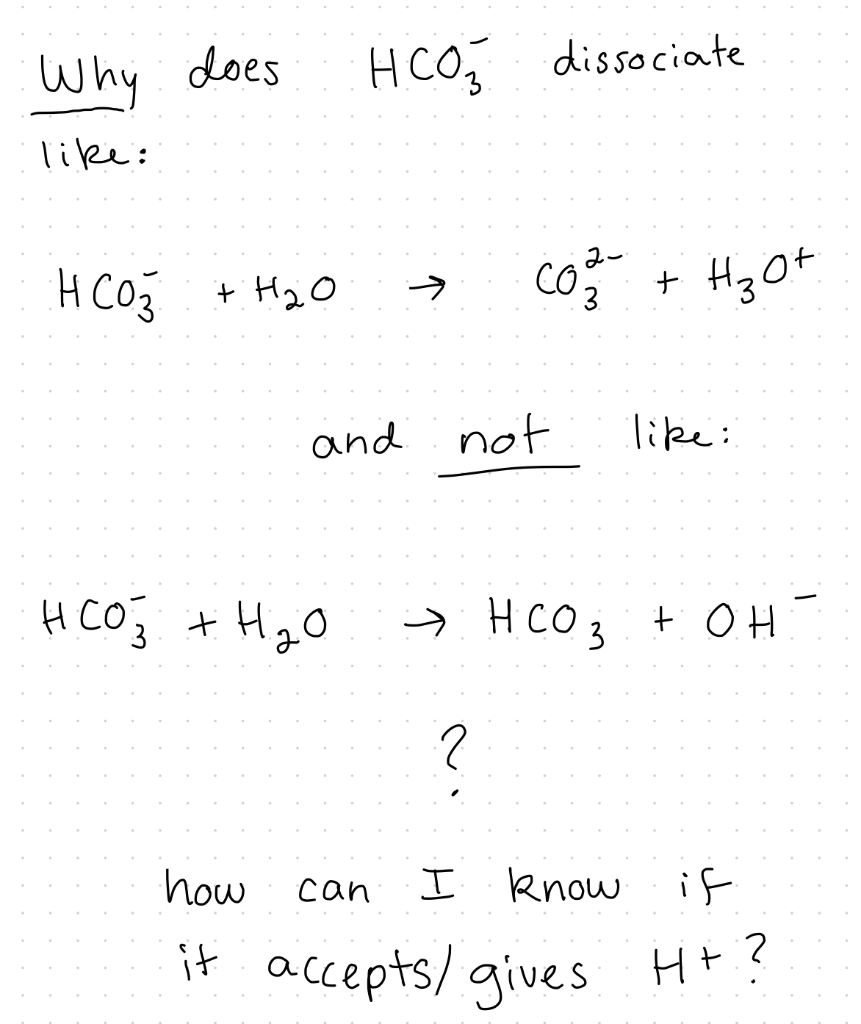 Why does HCO₃⁻ dissociate
like:
HCO₃⁻ + H₂O → CO₃²⁻ + H₃O⁺
and not like:
HCO₃⁻ + H₂O → HCO₃ + OH⁻
?
how can I know if
it accepts/gives H+?